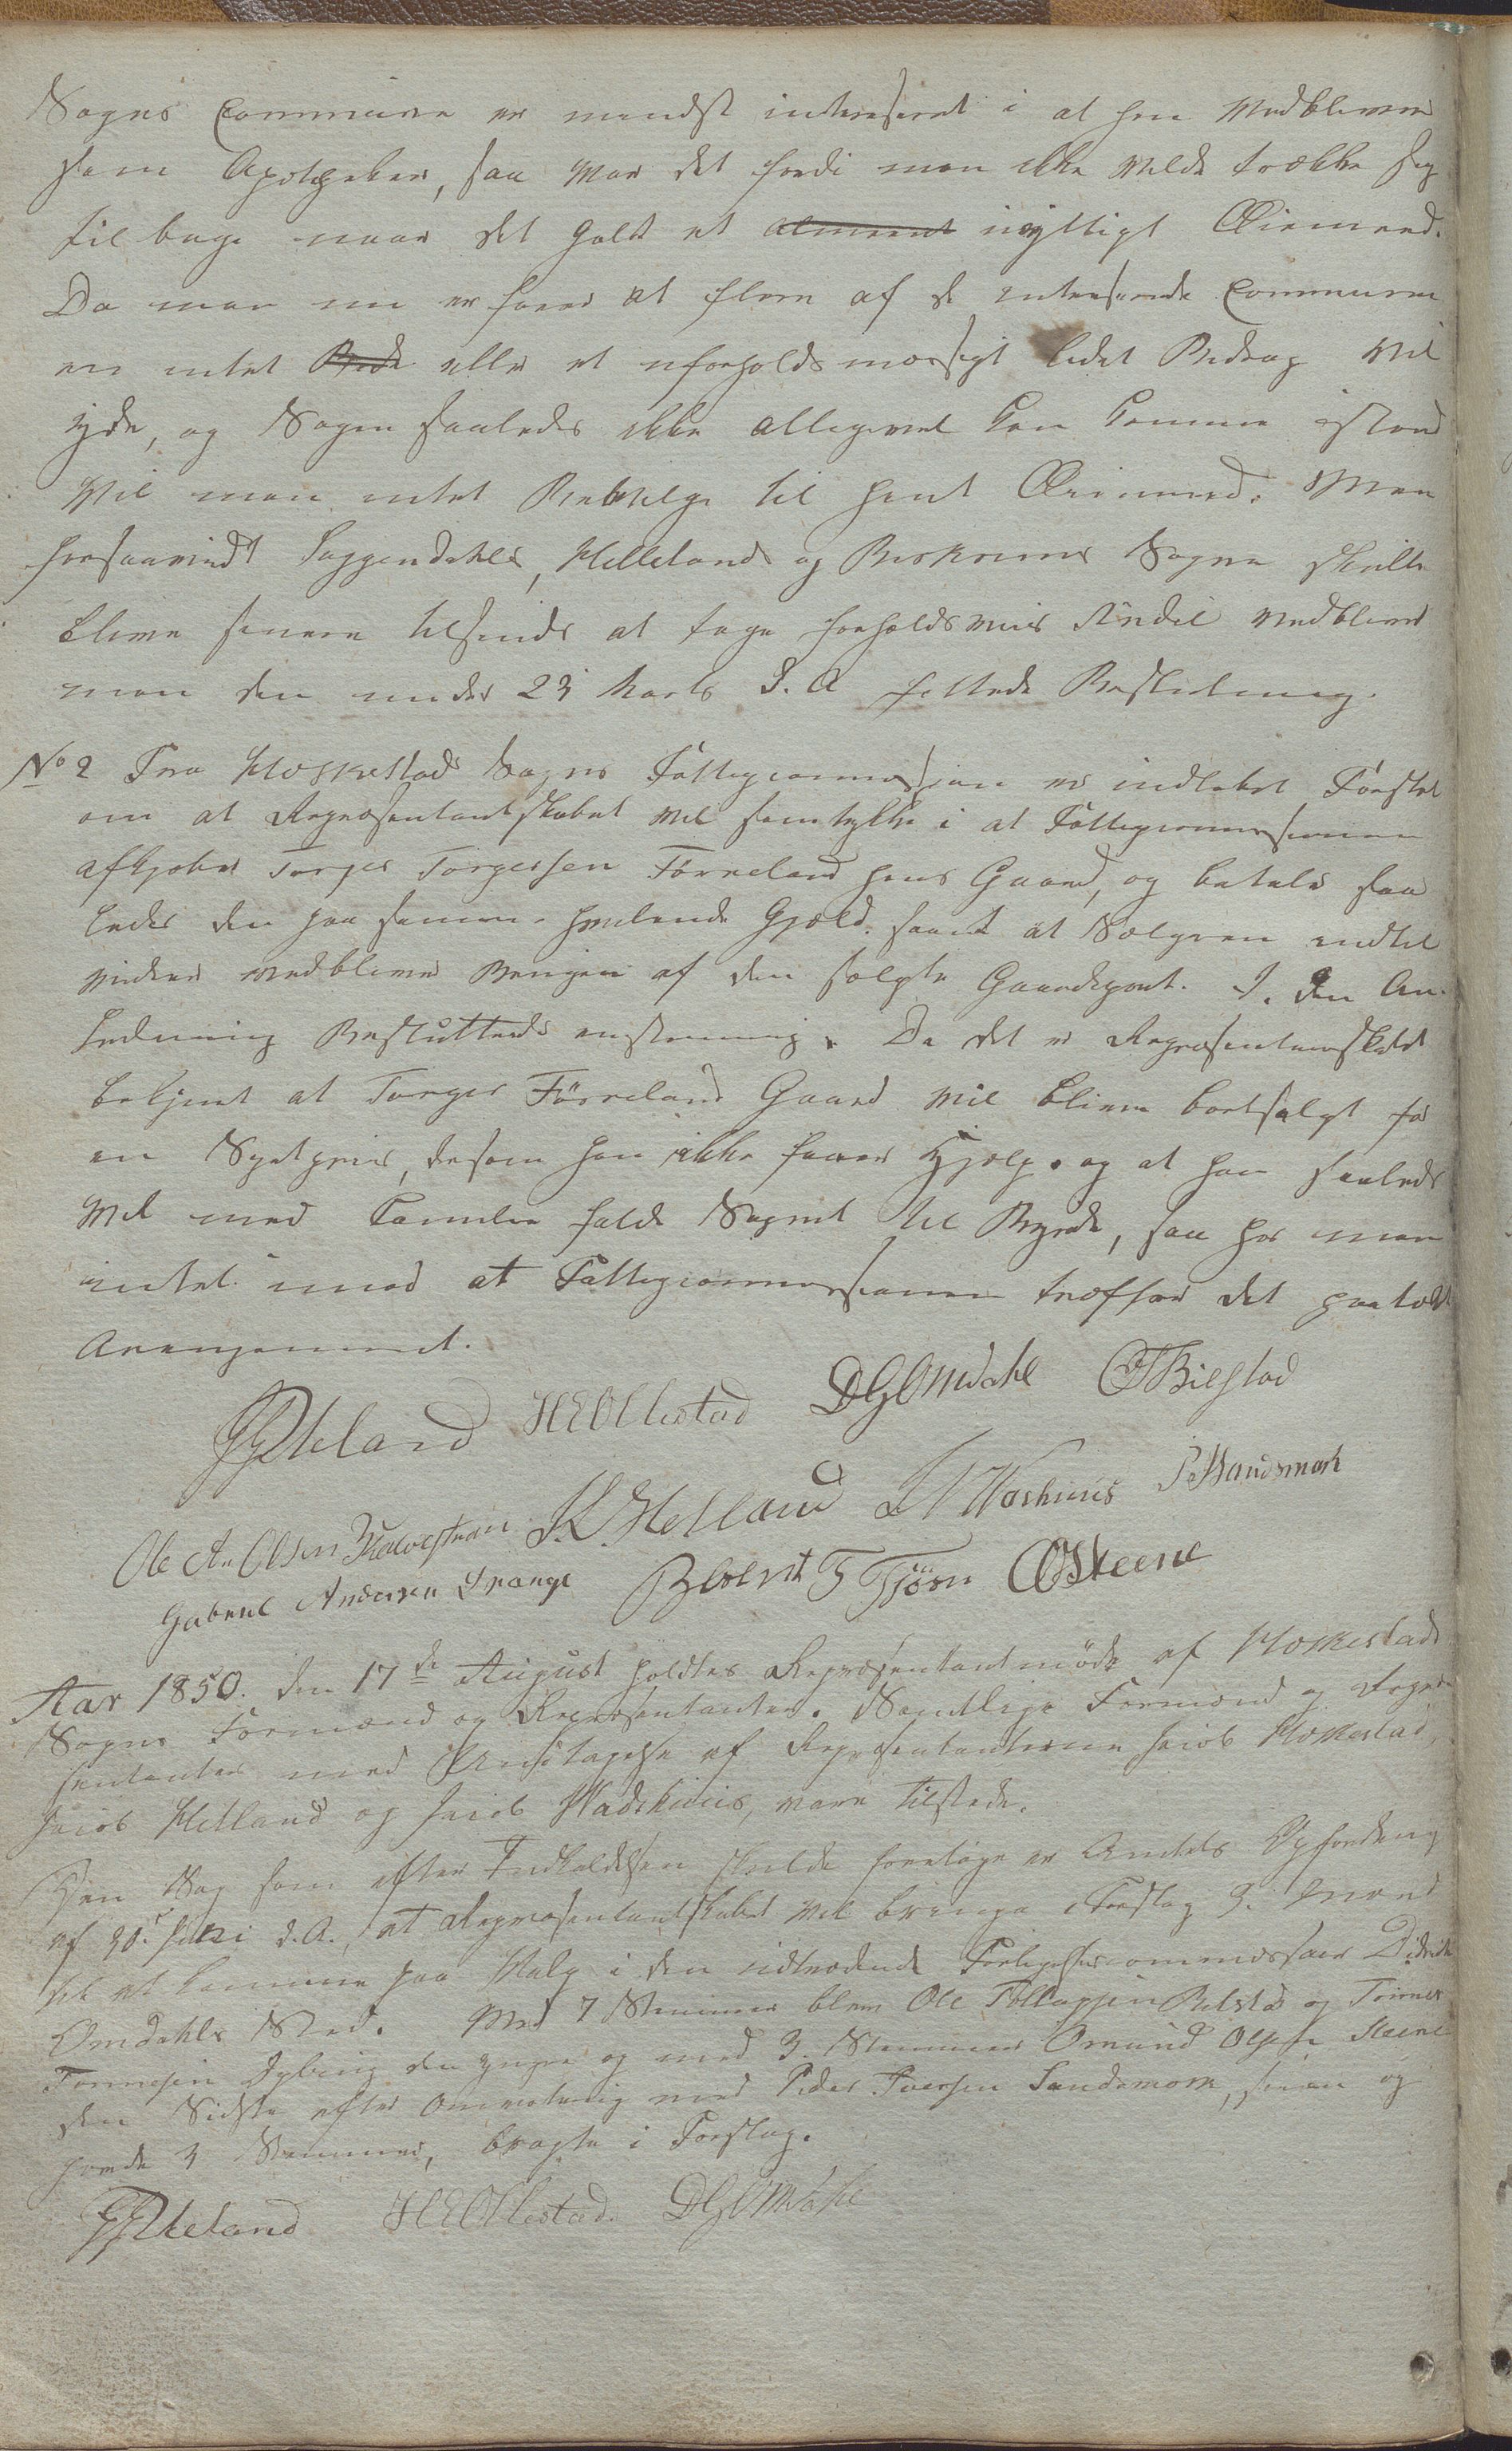 Sogns Commune er mindst interesseret i at han vedbliver
som Apotheker, saa var det fordi man ikke vilde trække sig
tilbage naar det galdt et almeent nyttigt Øiemeed.
Da man nu erfarer at flere af de interesserede Communer
en intet Bede eller et uforholdsmæssigt lidet Bidrag vil
yde, og Sagen saaledes ikke alligevel kan komme istand
vil man intet bevilge til hint Øiemeed. Men
forsaavidt Soggendahls, Hellelands og Birkrems Sogne skulle
blive senere tilsinds at tage forholdsviis Andel vedbliver
man den under 23 Marts d. A. fattede Beslutning.
No 2 Fra Hæskestad Sogns Fattigcommission er indløbet Forslag
om at Repræsentantskabet vil samtykke i at Fattigcommissionen
afkjøber Torger Torgersen Förreland hans Gaard, og betaler saa
ledes den paa samme hvilende Gjæld samt at Sælgeren indtil
videre vedbliver Brugen af den solgte Gaardepart. I den An-
ledning Besluttedes enstemmig. Da det er Repræsentantskabet
bekjent at Torger Förreland Gaard vil blive bortsolgt for
en Spotpriis, dersom han ikke faaer Hjælp, og at han saaledes
vil med Familie falde Sognet til Byrde, saa har man
intet imod at Fattigcommissionen træffer det paatænkte
Arrangement.
JJRkeland HEOllestad DGOmdahl OTBilstad
Ole An Olsen Skaarestrøn K. Helland Washuus PSandsmork
Gabriel Andersen Drange Berent T Tjörn OOSteene
Aar 1850. den 17de August holdtes Repræsentantmøde af Hæskestads
Sogns Formænd og Repræsentanter. Samtlige Formænd og Repræ-
sentanter med Undtagelse af Repræsentanterne Jacob Hæskestad,
Jacob Helland og Jacob Wadshuus, vare tilstede.
Den Sag som efter Indkaldelsen skulde foretages er Amtets Opfordring
af 20. Juni d. A., at Repræsentantskabet vil bringe i Forslag 3. Mænd
til at komme paa Valg i den udtrædende Forligelsescommissair Didrik
Omdahls Sted. Med 7 Stemmer blev Ole Tollagsen Bilstad og Tönnes
Tönnesen Dybing den yngre og med 3. Stemmer Omund Olsen Steene
den Sidste efter Omvotering med Peder Iversen Sandsmork, som og
havde 3 Stemmer, bragte i Forslag.
JJRkeland HEOllestad DGOmdahl